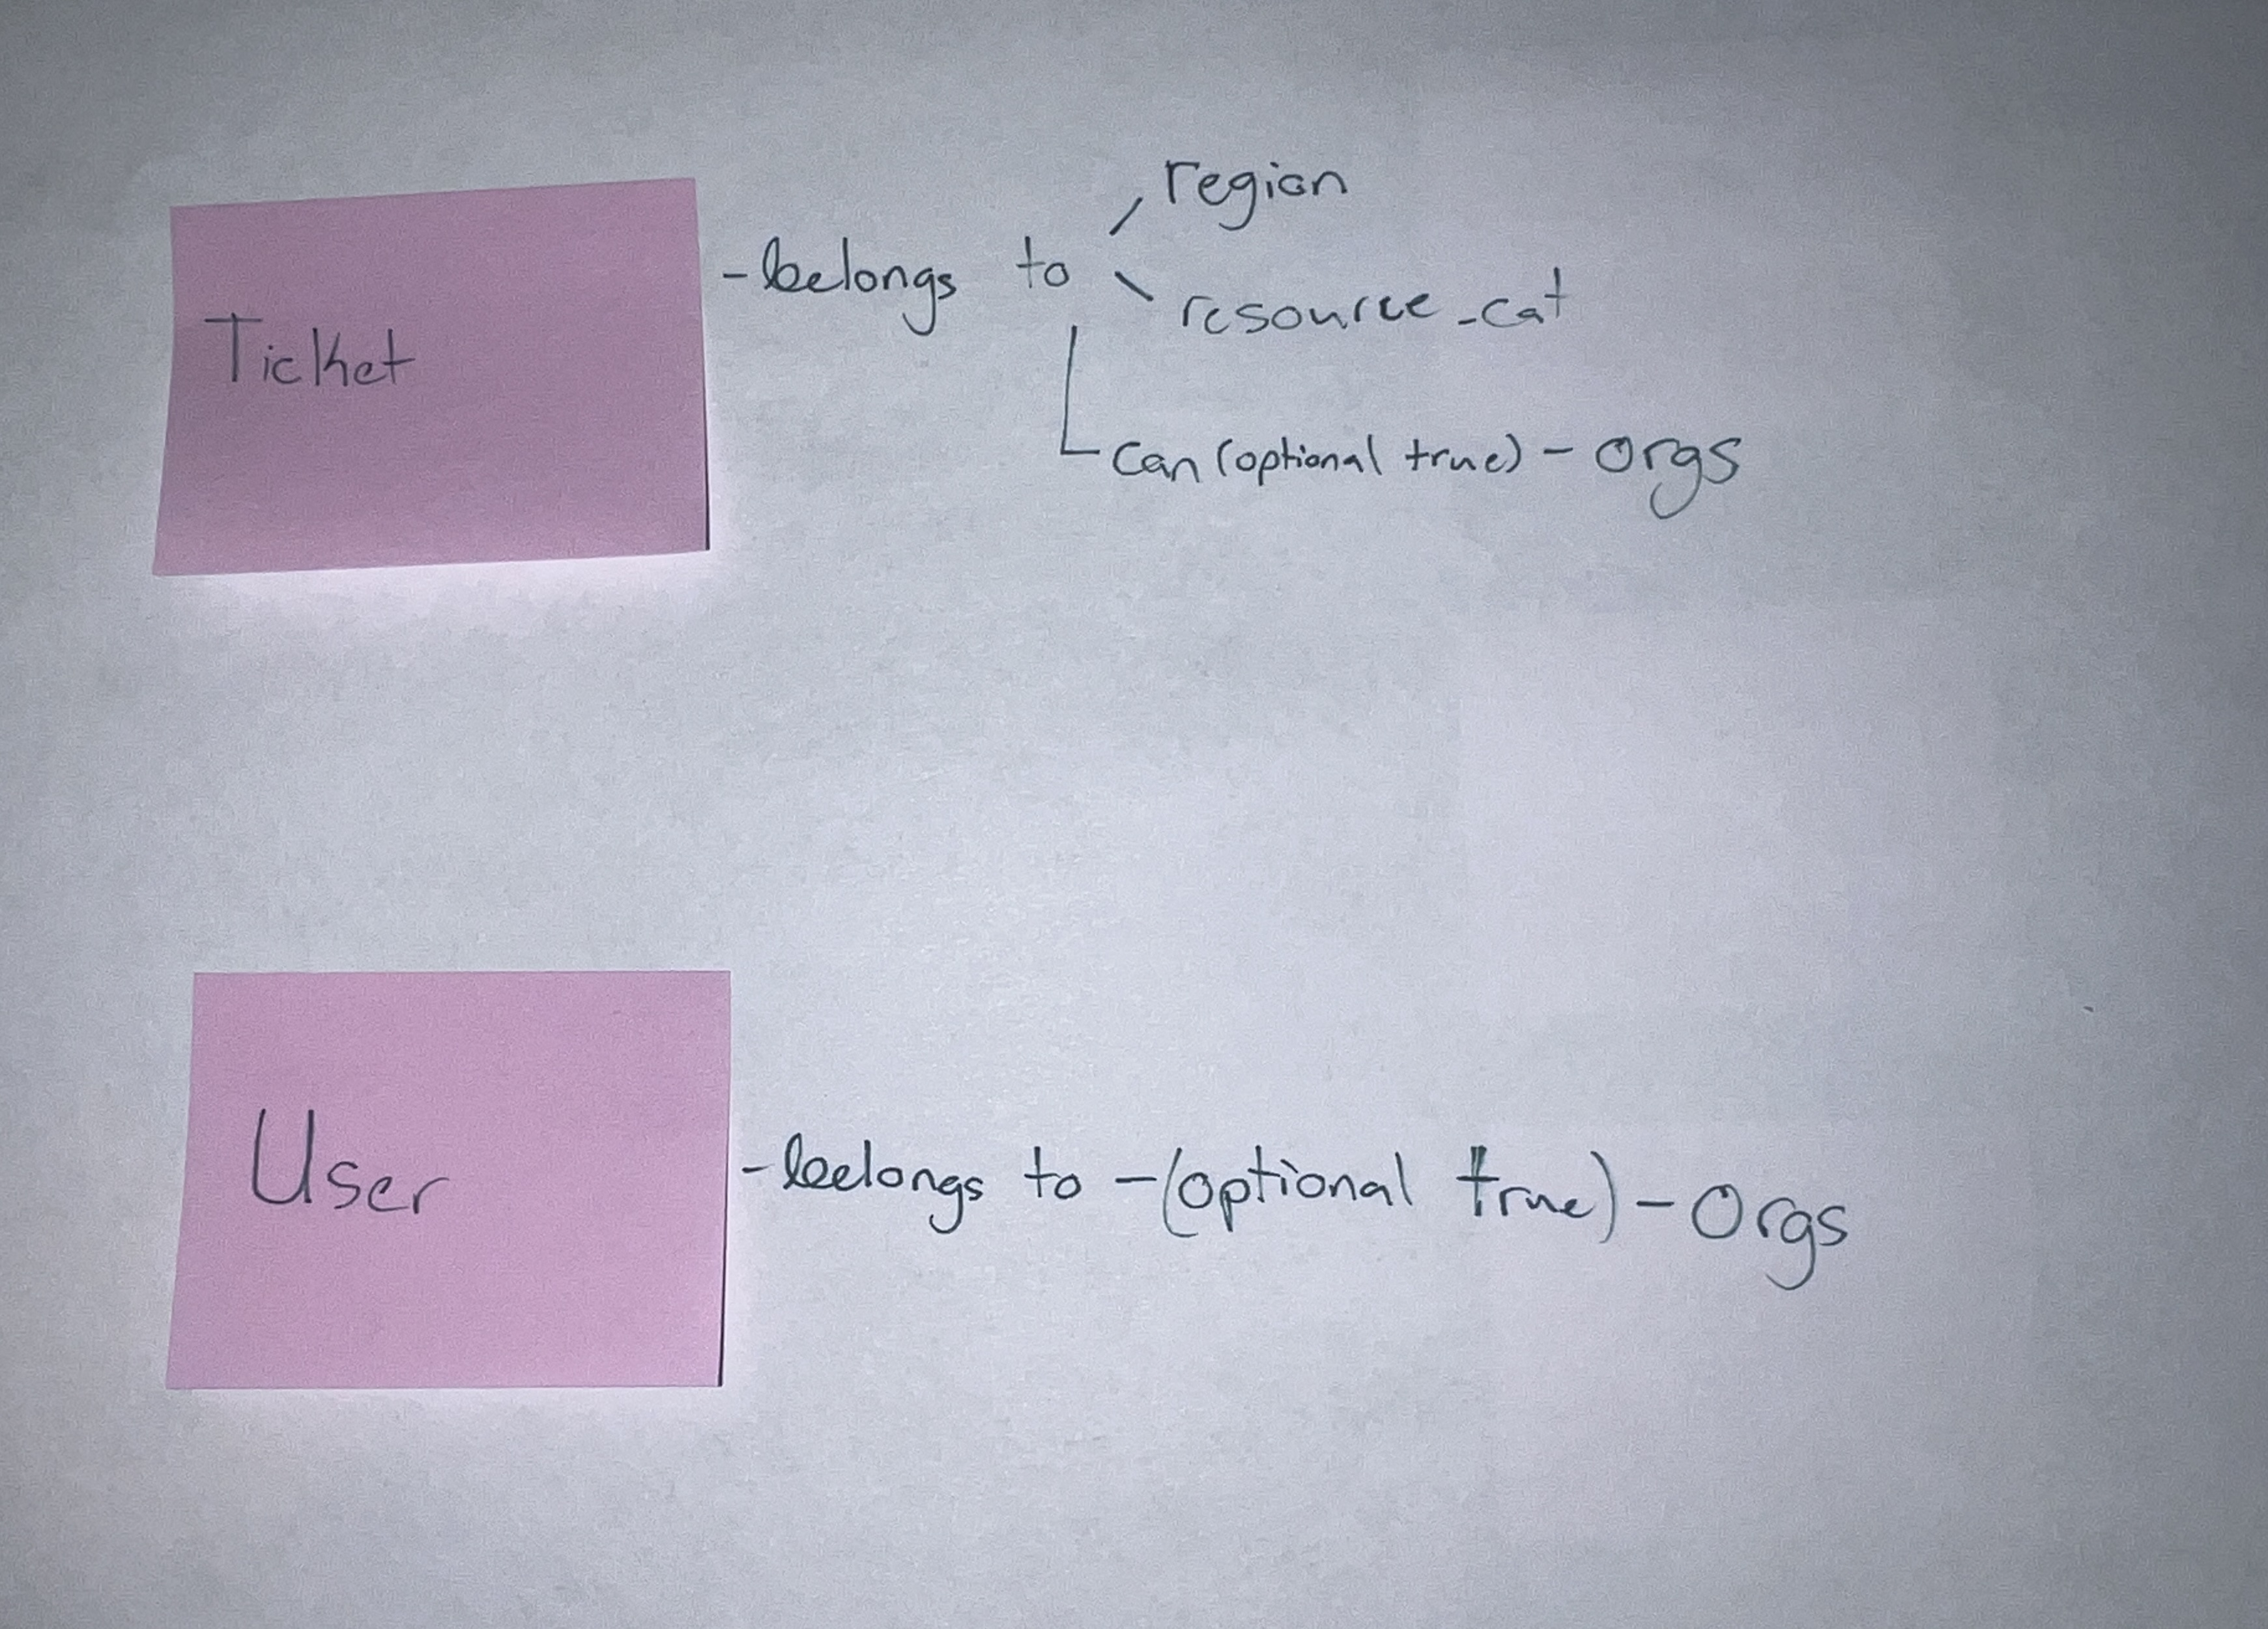 Ticket
-belongs to
region
resource_cat
can (optional true) - orgs
User
-belongs to -(optional true) - Orgs